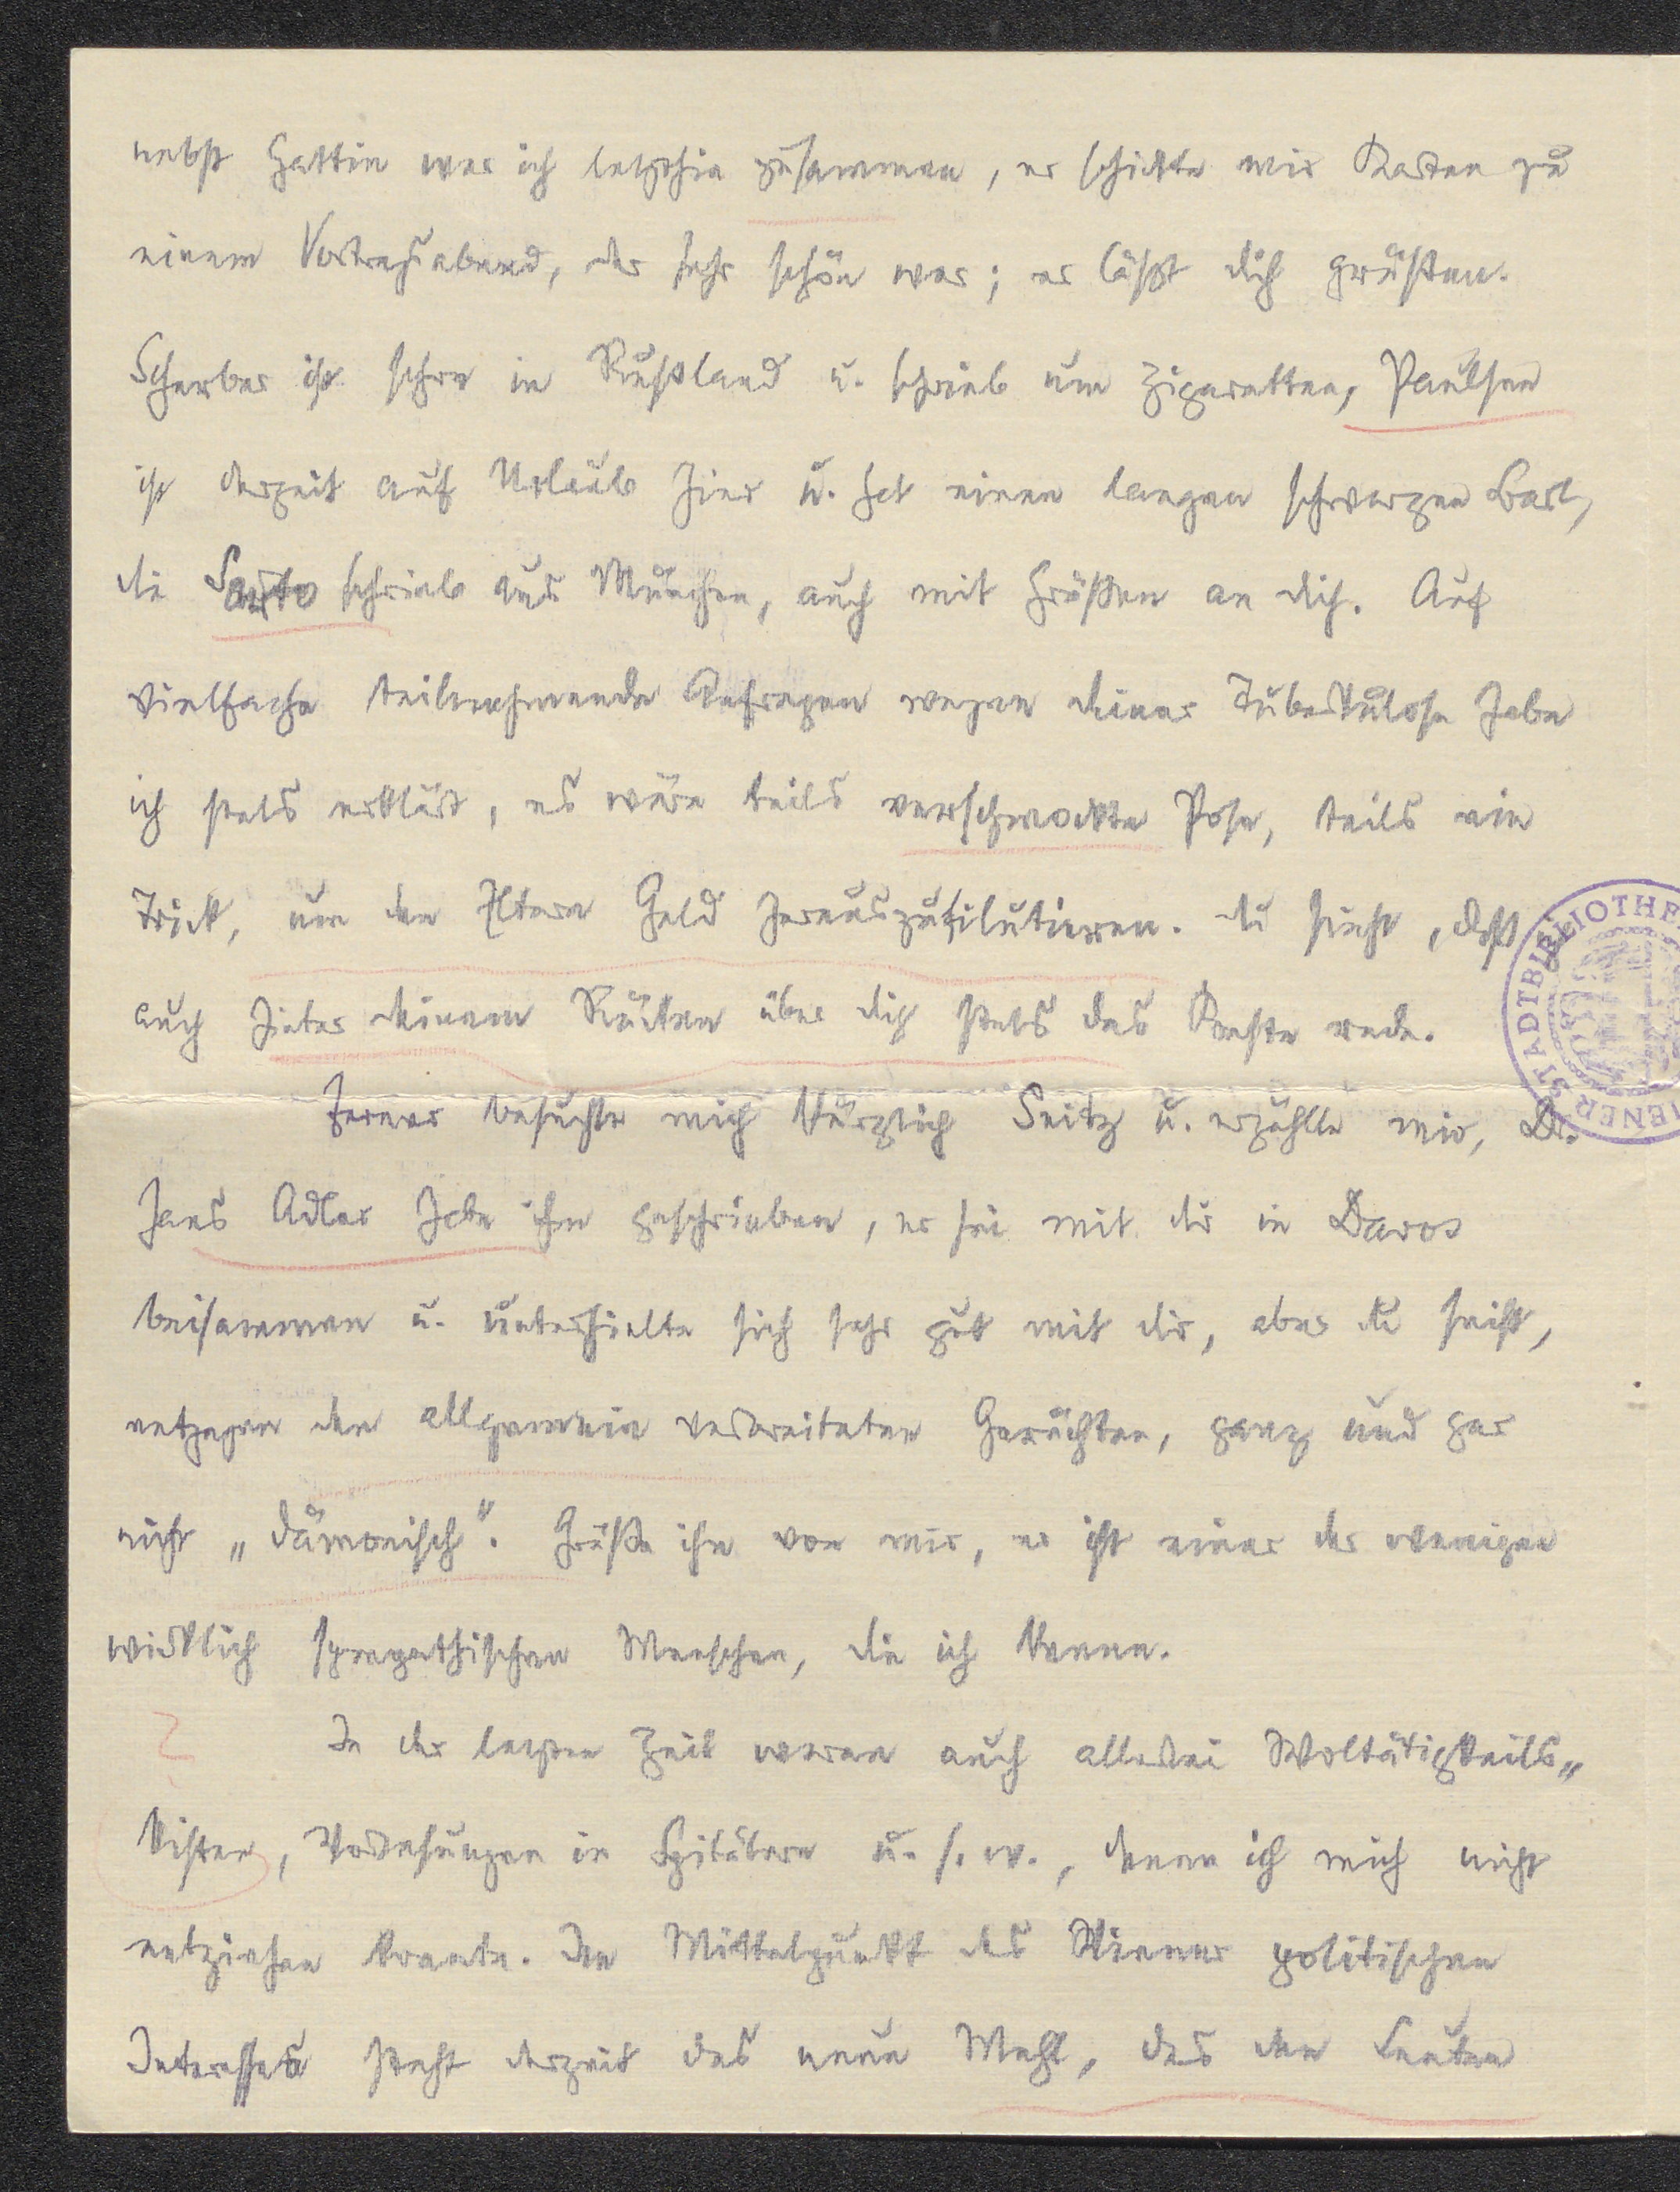 nebst Gattin war ich letzthin zusammen, er schickte mir Karten zu
einem Vortragsabend, der sehr schön war; er läßt dich grüßen.
Scherber ist schon in Rußland u. schrieb um Zigaretten, Paulsen
ist derzeit auf Urlaub hier u. hat einen langen schwarzen Bart,
die schrieb aus München, auch mit Grüßen an dich. Auf
vielfache teilnehmende Anfragen wegen deiner Tuberkulose habe
ich stets erklärt, es wäre teils verschmockte Pose, teils ein
Trick, um den Eltern Geld herauszufilutieren. Du siehst, daß
auch hinter deinem Rücken über dich stets das Beste rede.
Ferner besuchte mich kürzlich Seitz u. erzählte mir, Dr.
Hans Adler habe ihm geschrieben, er sei mit dir in Davos
beisammen u. unterhielte sich sehr gut mit dir, aber du seist,
entgegen den allgemein verbreiteten Gerüchten, ganz und gar
nicht „dämonisch". Grüße ihn von mir, er ist einer der wenigen
wirklich sympathischen Menschen, die ich kenne.
In der letzten Zeit waren auch allerlei Woltätigkeits„
kisten, Vorlesungen in Spitälern u. s. w., denen ich mich nicht
entziehen konnte. Im Mittelpunkt des Wiener politischen
Interesses steht derzeit das neue Mehl, das den Leuten
STADTBIBLIOTHE
WIENER